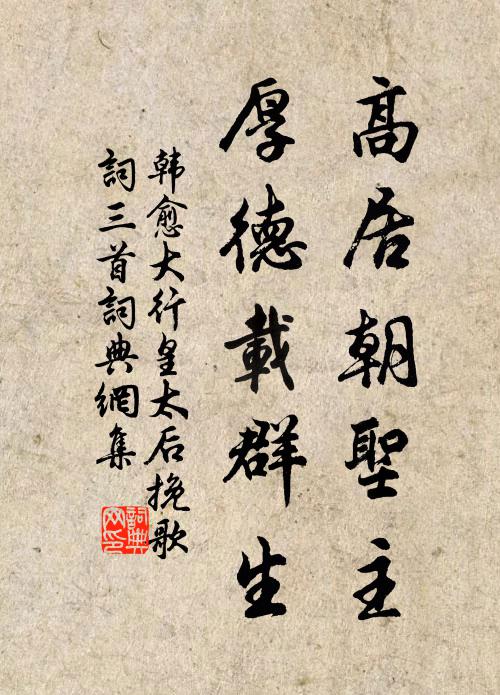 高居朝聖主
厚德載群生
韩愈大行皇太后挽歌
詞三首詞典網集
詞典网印